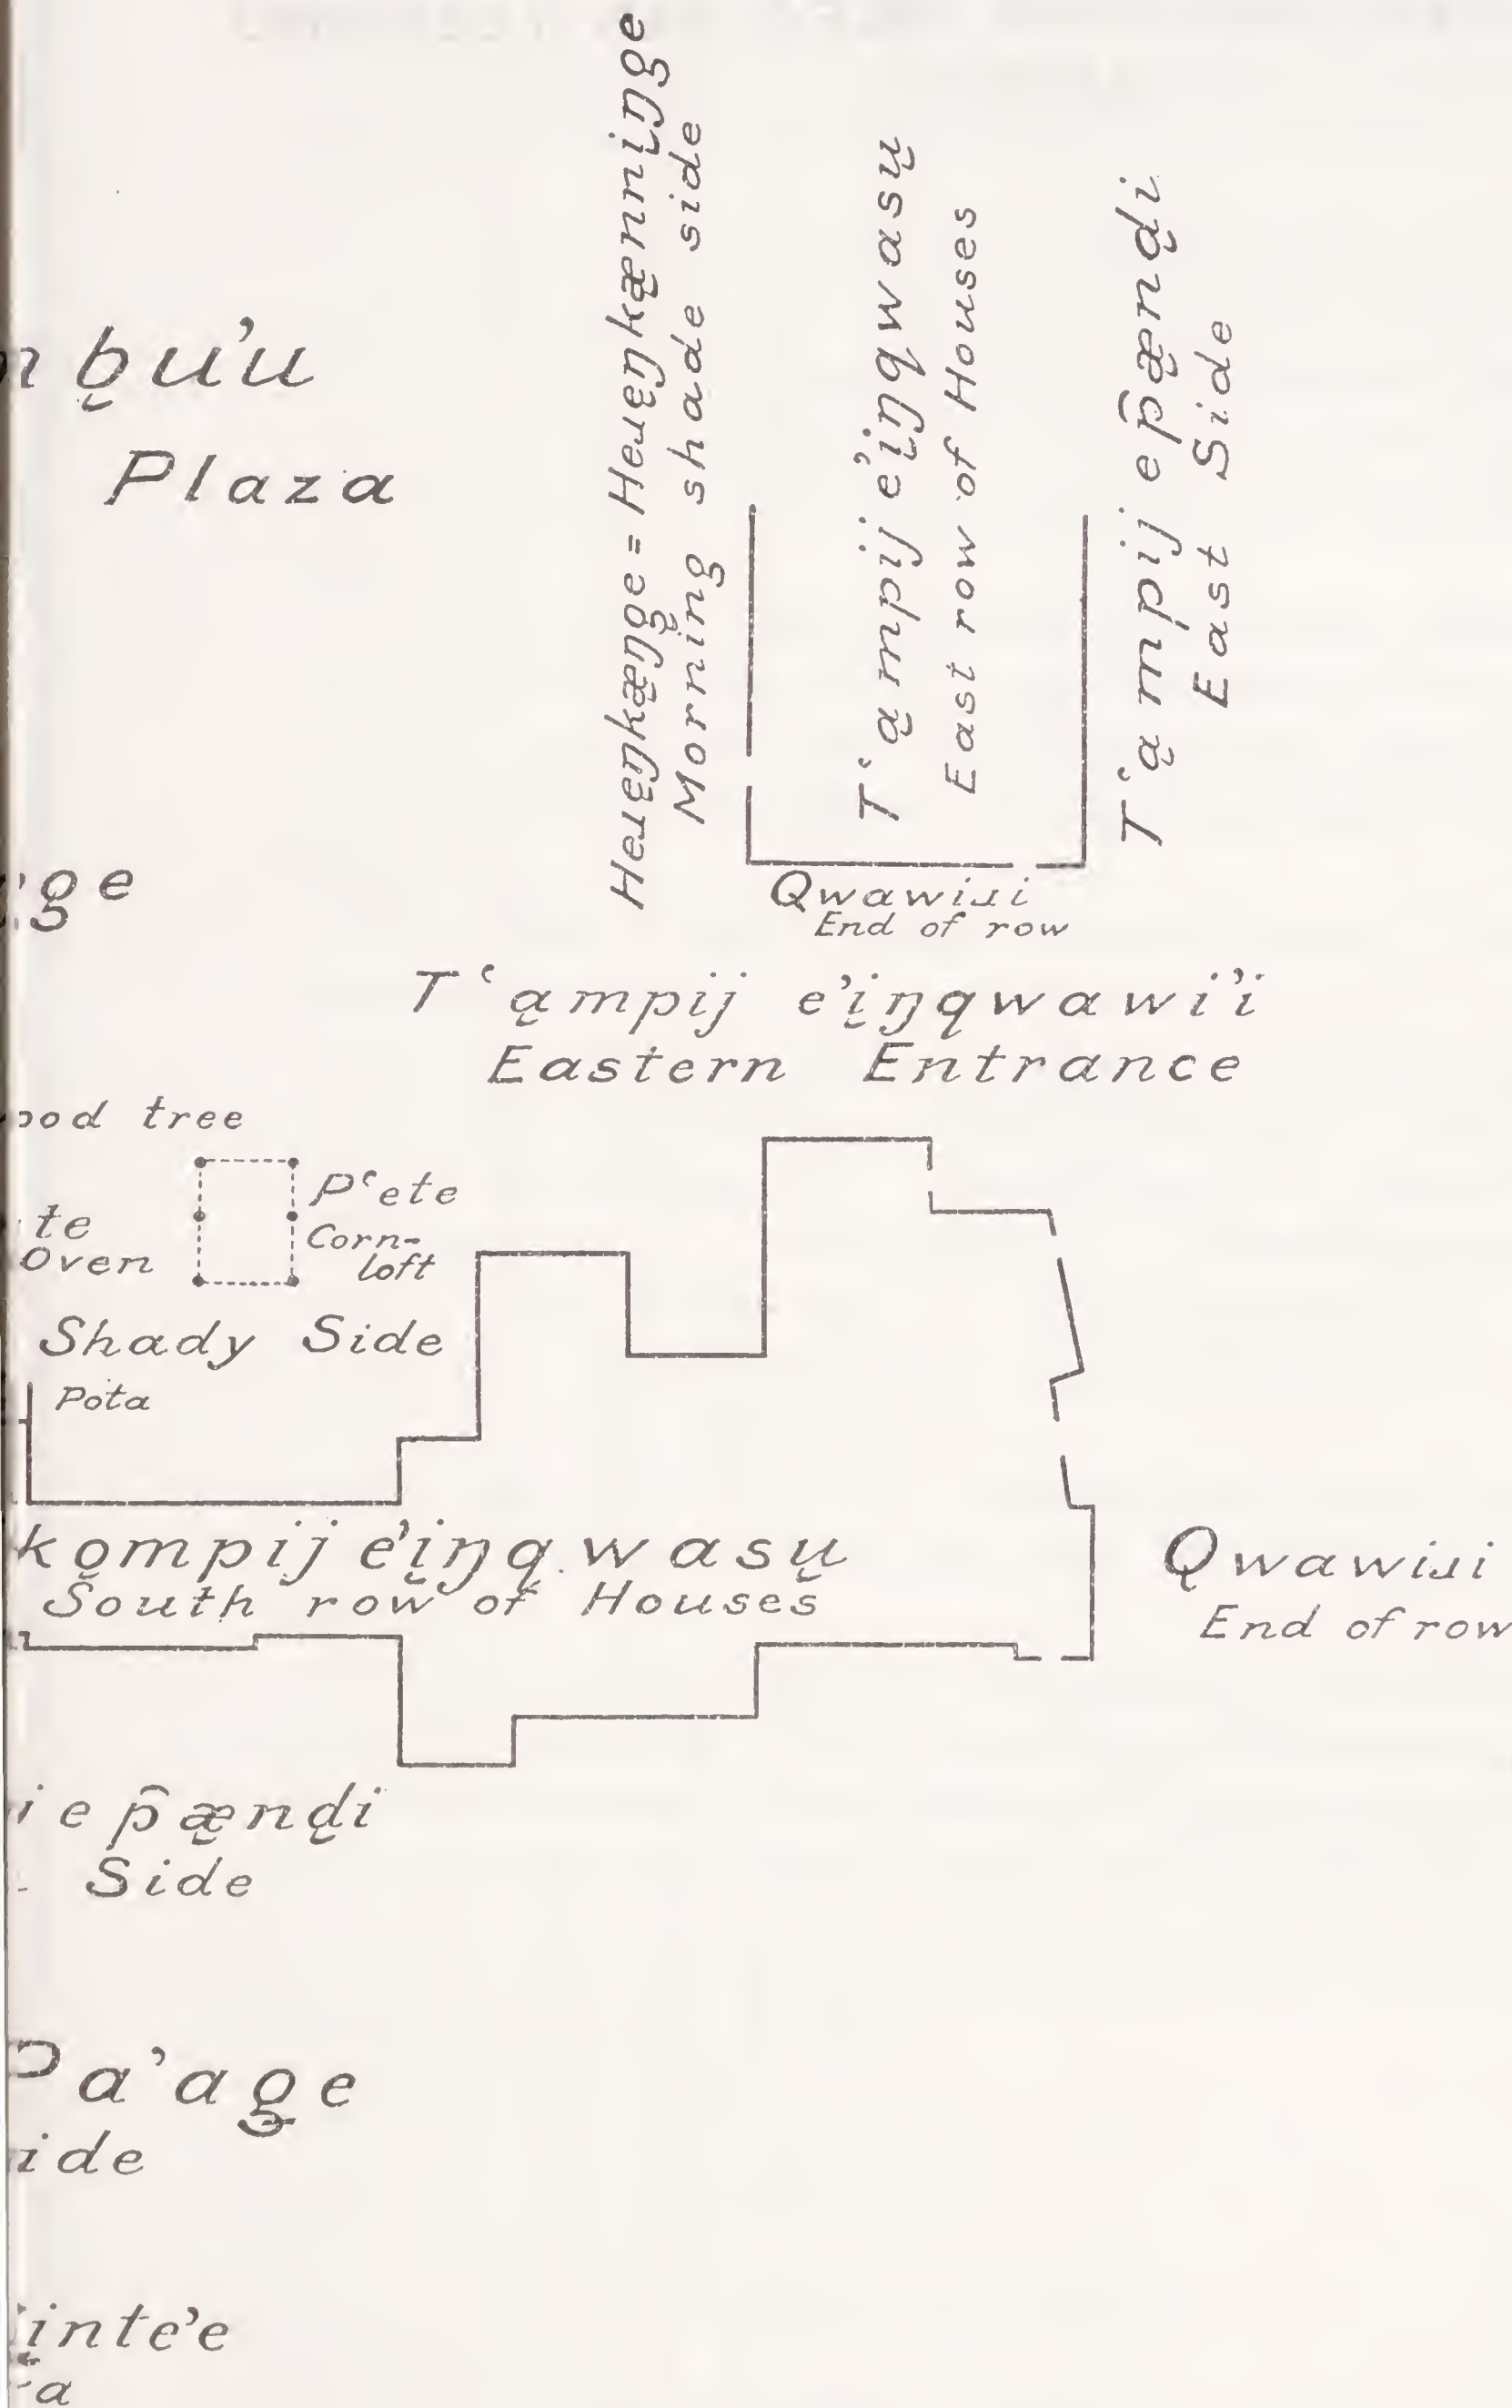 bu'u
Plaza
Heɹęŋkæŋge = Heɹęŋkænniŋge
Morning shade side
T‘ąmpij e'įŋqwasų
East row of Houses
T‘ąmpij ep̂ændi
East Side
ge
Qwawiɹi
End of row
T‘ąmpij e'įŋqwawi'i
Eastern Entrance
tree
P‘ete
Corn-
loft
te
Oven
Shady Side
Pota
kǫmpij e'įŋqwasų
South row of Houses
Qwawiɹi
End of row
ep̂ændi
Side
Pa'age
ide
įnte'e
a